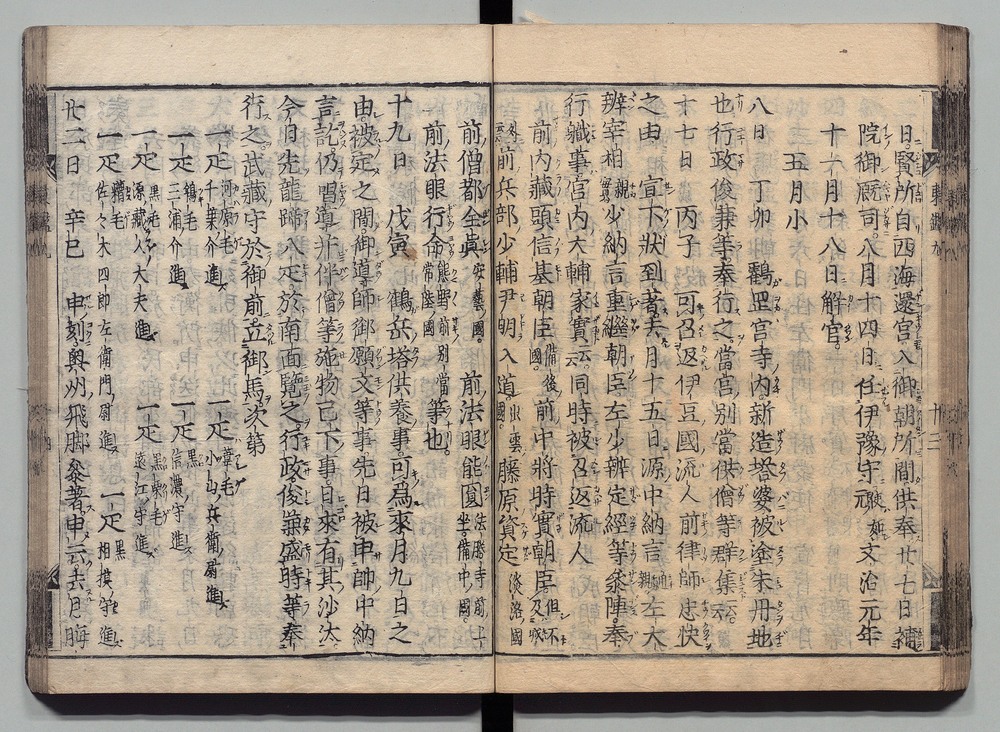 日。賢所自西海還宮。入御朝所間供奉。廿七日補
院御厩司。八月十四日任伊豫守。元文治元年
十一月十八日解官。
五月小
八日 丁卯 鶴岡宮寺内新造塔婆被塗朱丹地
也。行政俊兼等奉行之。當宮別當供僧等群集云云。
十七日 丙子 可召返伊豆國流人前律師忠快
之由 宣下狀到著。去月十五日源中納言 左大
辨宰相親 少納言重繼朝臣左少辨定經等參陣。奉
行職事宮内大輔家實云云。同時被召返流人
前内藏頭信基朝臣備後國 前中將時實朝臣
前兵部少輔尹明入道出雲國 藤原資定淡路國
前僧都全眞安藝國 前法眼能圓法勝寺前上座備中國
前法眼行命熊野前別當常陸國等也。
十九日 戊寅 鶴岳塔供養事。可爲來月九日之
由被定之間。御導師御願文等事。先日被申帥中納
言訖。仍唱導幷伴僧等施物已下事。日來有其沙汰。
今日先龍蹄八疋於南面覽之。行政俊兼盛時等奉
行之。武藏守於御前立御馬次第
一疋河原毛千葉介進 一疋葦毛小山兵衛尉進
一疋鴾毛三浦介進 一疋黒信濃守進
一疋黒毛源藏人大夫進 一疋黒栗毛遠江守進
一疋糟毛佐々木四郎左衛門尉進 一疋黒相摸守進
廿二日 辛巳 申刻。奥州飛脚參著。申云。去月晦
東鑑九
廿三